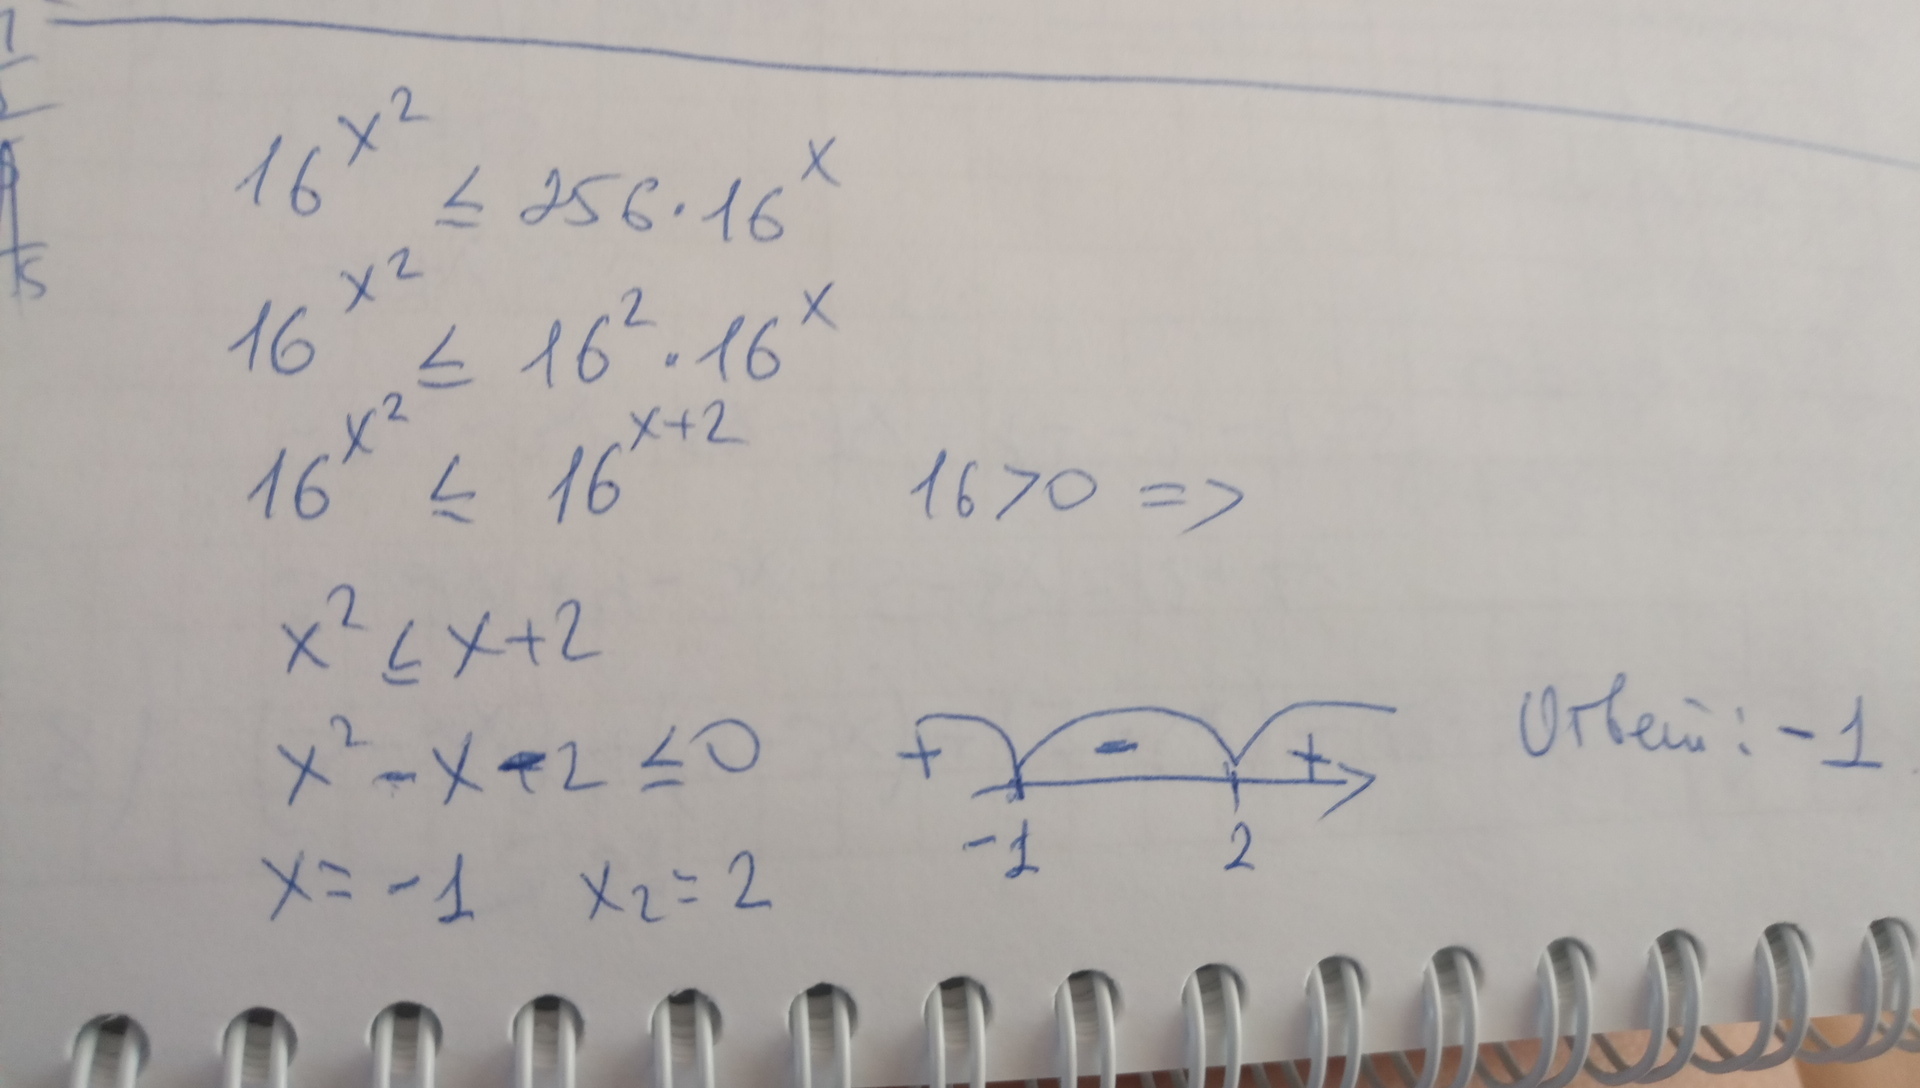 16^{x^2} ≤ 256 · 16^x
16^{x^2} ≤ 16^2 · 16^x
16^{x^2} ≤ 16^{x+2} 16>0 =>
x^2 ≤ x+2
x^2 - x - 2 ≤ 0
+ - +
-1 2
Ответ: -1
x = -1 x_2 = 2